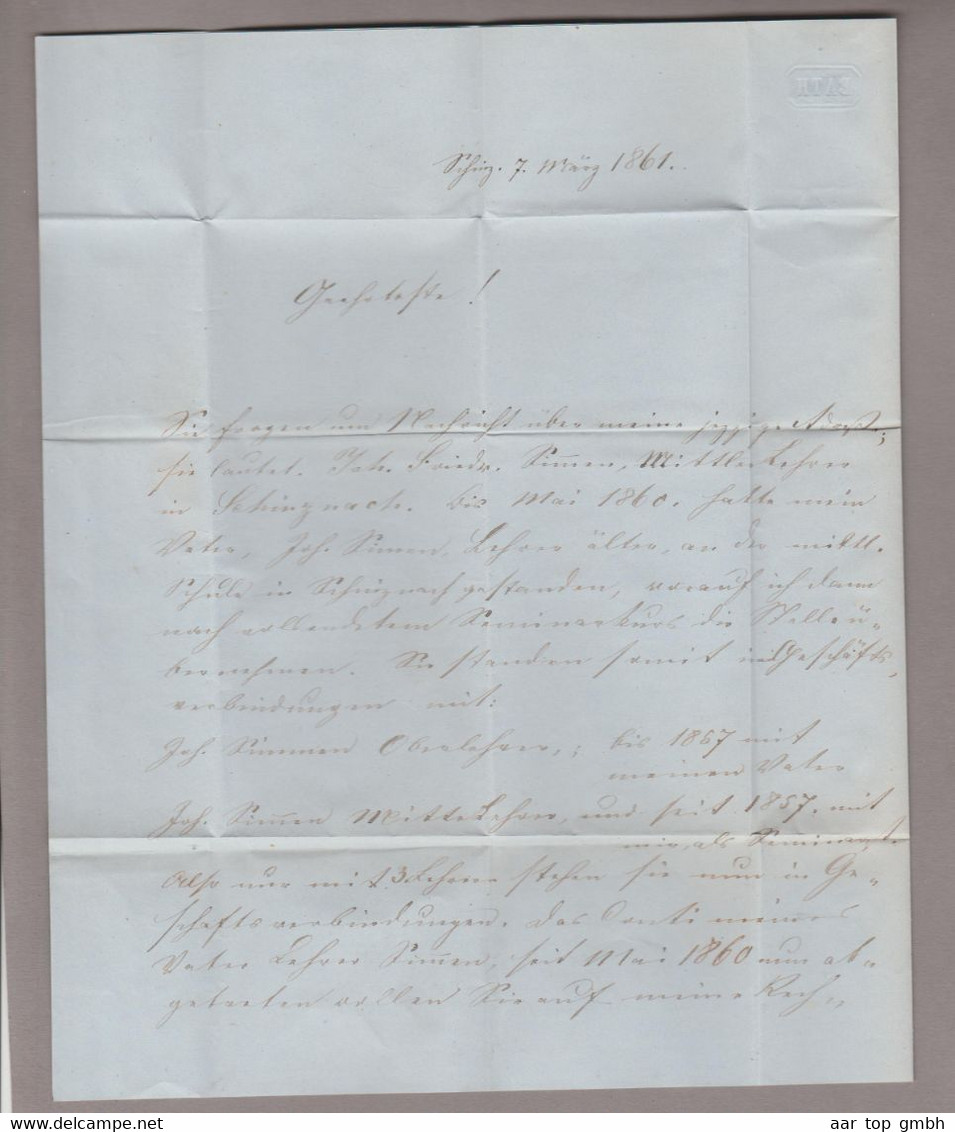 Schinz. 7. März 1861.
Geehrteste!
Sie fragen um Nachricht über meine jezzige Adresse;
sie lautet. Joh. Friedr. Simmen, Mittlerlehrer
in Schinznach. Bis Mai 1860. hatte mein
Vater, Joh. Simmen, Lehrer älter, an der mittl.
Schule in Schinznach gestanden, worauf ich dann
nach vollendetem Seminarkurs die Stelle ü-
bernehmen. Sie standen somit in Geschäfts-
verbindungen mit:
Joh. Simmen Oberlehrer,; bis 1857 mit
meinen Vater
Joh. Simmen Mittellehrer, und seit 1857. mit
mir, als Seminarist.
Also nur mit 3 Lehrer stehen sie nun in Ge-
schäftsverbindungen. Das Conti meines
Vater Lehrer Simmen, seit Mai 1860 nun ab-
getreten wollen Sie auf meine Rech-
aar top gmbh